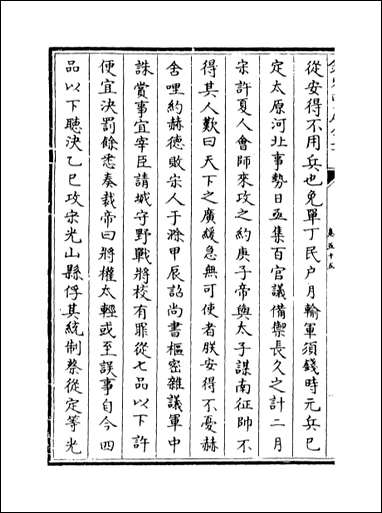 從安得不用兵也免單丁民户月輸軍須錢時元兵已
定太原河北事勢日亟集百官議備禦長久之計二月
宋許夏人會師來攻之約庚子帝與太子謀南征帥不
得其人歎曰天下之廣緩急無可使者朕安得不憂赫
舍哩約赫德敗宋人于滁甲辰詔尚書樞密雜議軍中
誅賞事宜宰臣請城守野戰將校有罪從七品以下許
便宜決罰餘悉奏裁帝曰將權太輕或至誤事自今四
品以下聽決乙巳攻宋光山縣俘其統制蔡從定等光